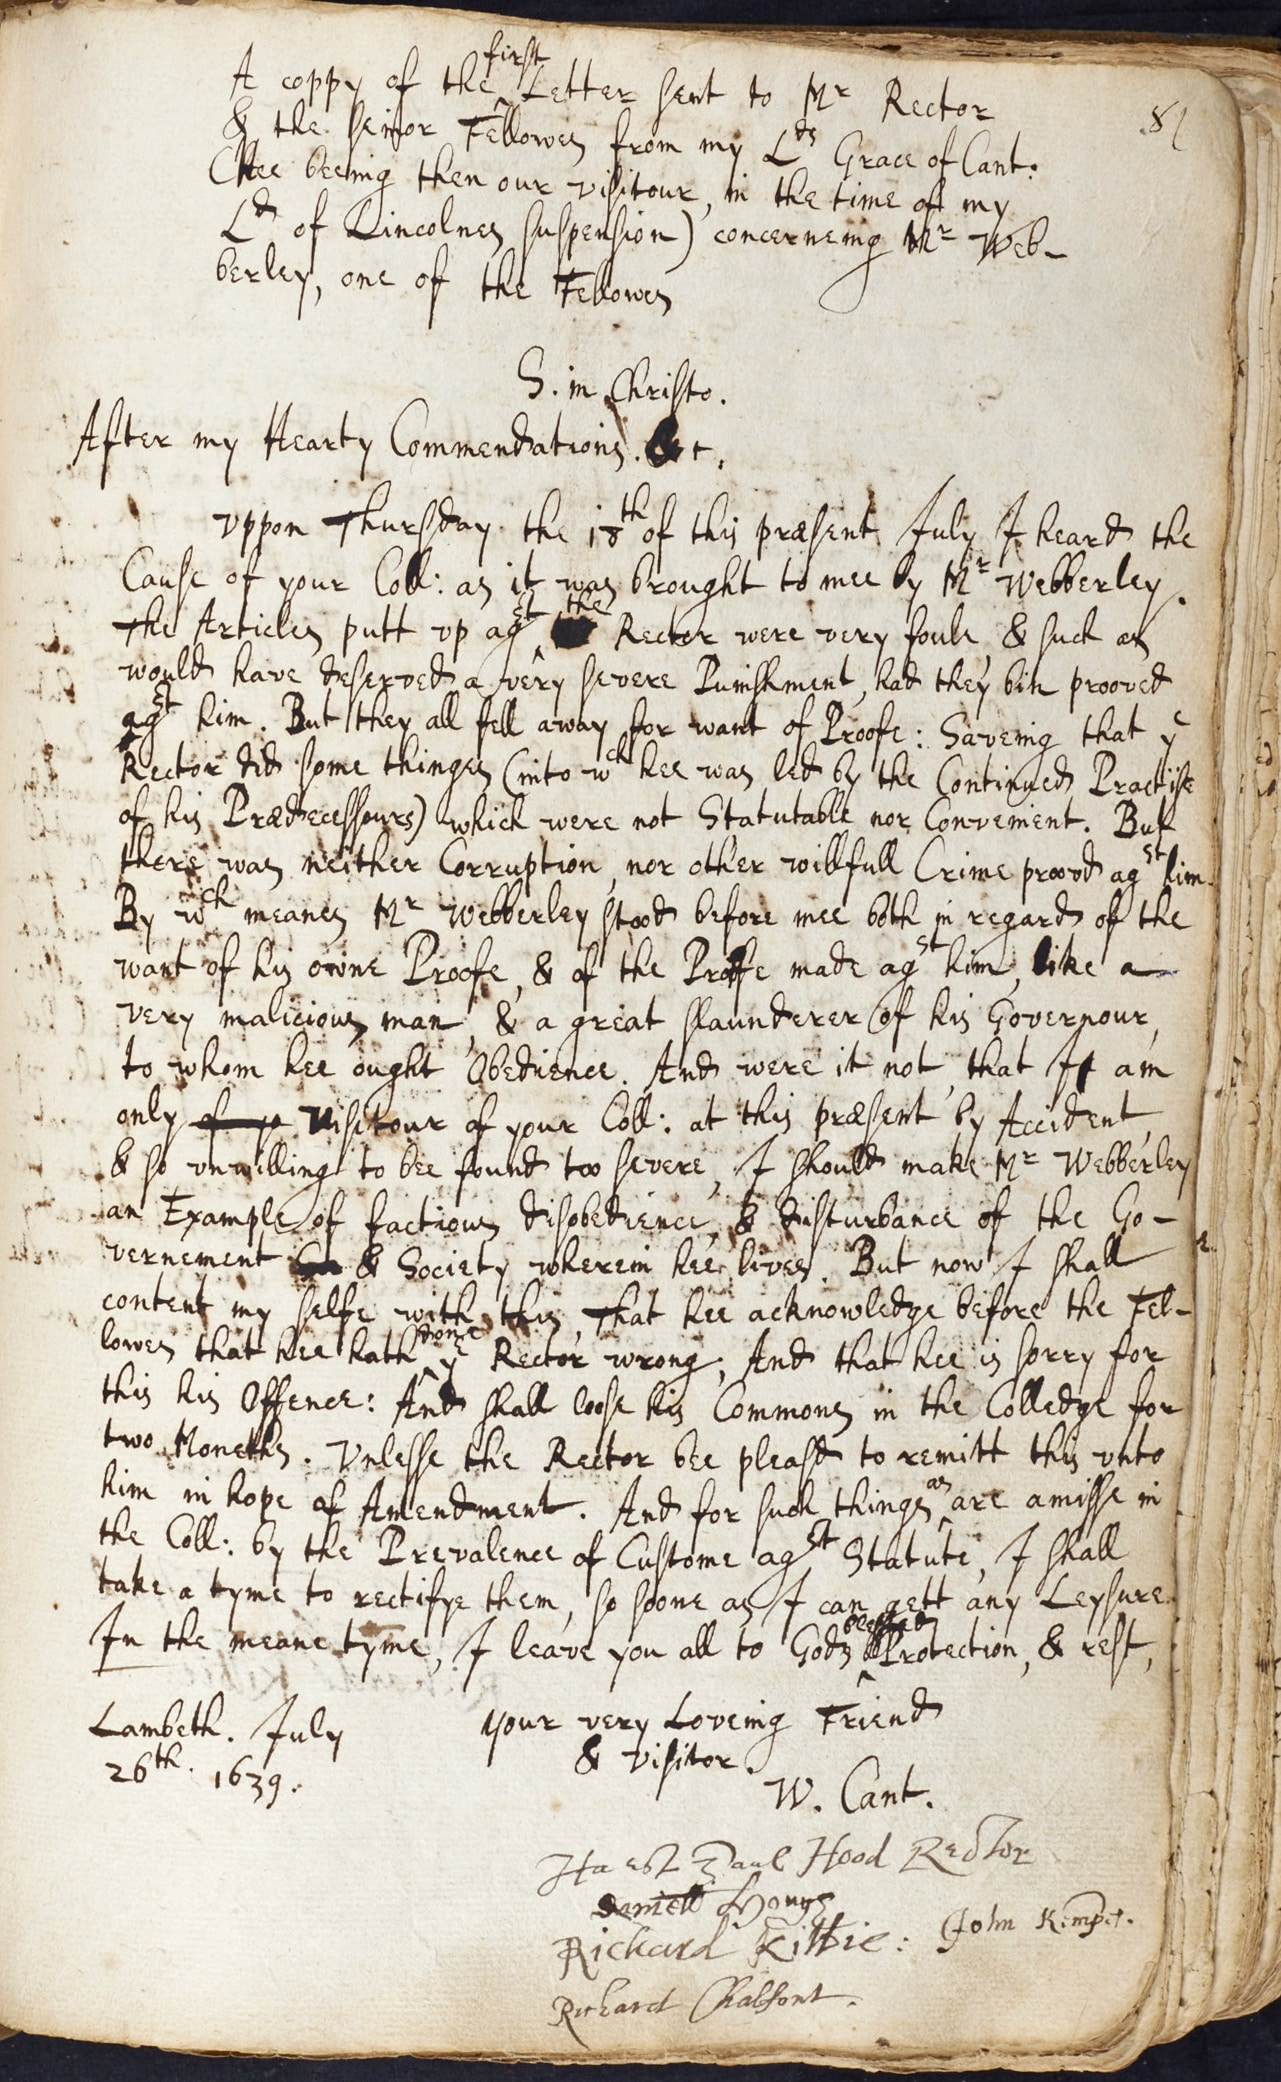 81
A coppy of the first Letter sent to Mr Rector
& the Seinor Fellowes from my Lds Grace of Cant:
(Hee beeing then our visitour, in the time of my
Ld of Lincolnes suspension) concerneing Mr Web-
berley, one of the Fellowes
S. in Christo.
After my Hearty Commendations. &c.
Uppon Thursday the 18th of this præsent July I heard the
Cause of your Coll: as it was brought to mee by Mr Webberley.
The Articles putt up agst the Rector were very foule, & such as
would have deserved a very severe Punishment, had they bin prooved
agst him. But they all fell away for want of Proofe: Saveing that ye
Rector did some thinges (into wch hee was led by the Continued Practise
of his Prædecessours) which were not Statutable nor Convenient. But
there was neither Corruption, nor other willfull Crime proovd agst him.
By wch meanes Mr Webberley stood before mee both in regard of the
want of his owne Proofe, & of the Proofe made agst him, like a
very malicious man, & a great slaunderer of his Governour,
to whom hee ought Obedience. And were it not, that I am
only of ye Visitour of your Coll: at this præsent by Accident,
& so unwilling to bee found too severe, I should make Mr Webberley
an Example of factious disobedience, & disturbance of the Go-
vernement & Society wherein hee lives. But now I shall
content my selfe with this, That hee acknowledge before the Fel-
lowes that hee hath done ye Rector wrong; And that hee is sorry for
this his Offence: And shall loose his Commons in the Colledge for
two Moneths. Unlesse the Rector bee pleasd to remitt this unto
him in hope of Amendment. And for such things as are amisse in
the Coll: by the Prevalence of Custome agst Statute, I shall
take a tyme to rectifye them, so soone as I can gett any Leysure.
In the meane tyme, I leave you all to Gods blessed Protection, & rest,
Lambeth. July
26th. 1639.
your very Loveing Friend
& visitor.
W. Cant.
Ita est Paul Hood Rector
Daniell Hough
Richard Kilbie: John Kempe.
Richard Chalfont.